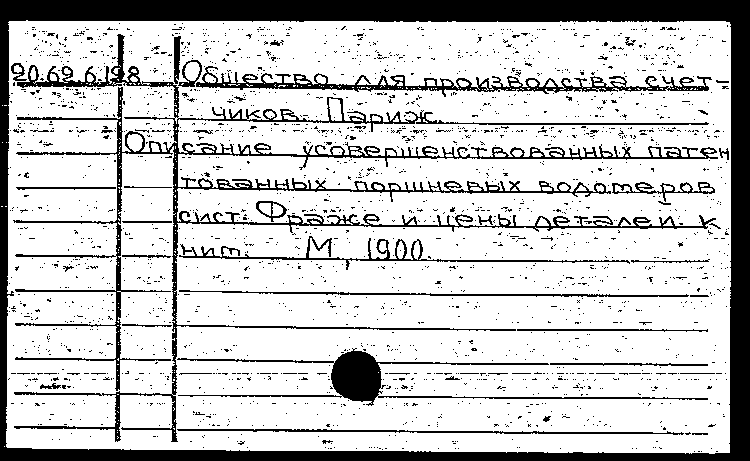 20.62.6.198 Общество для производства счет-
чиков. Париж.
Описание усовершенствованных патен
тованных поршневых водомеров
сист. Фраже и цены деталей к
ним. М, 1900.